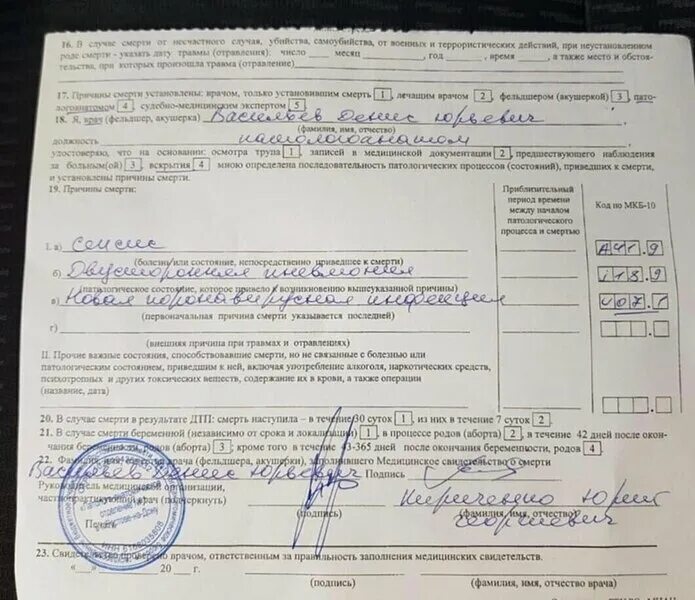 16. В случае смерти от несчастного случая, убийства, самоубийства, от военных и террористических действий, при неустановленном
роде смерти - указать дату травмы (отравления): число месяц , год , время , а также место и обстоя-
тельства, при которых произошла травма (отравление)
17. Причины смерти установлены: врачом, только установившим смерть 1 , лечащим врачом 2 , фельдшером (акушеркой) 3 , пато-
логоанатомом 4 , судебно-медицинским экспертом 5
18. Я, врач (фельдшер, акушерка) Васильев Денис Юрьевич
(фамилия, имя, отчество)
должность патологоанатом
удостоверяю, что на основании: осмотра трупа 1 , записей в медицинской документации 2 , предшествующего наблюдения
за больным(ой) 3 , вскрытия 4 мною определена последовательность патологических процессов (состояний), приведших к смерти,
и установлены причины смерти.
19. Причины смерти:
Приблизительный период времени между началом патологического процесса и смертью
Код по МКБ-10
I. а) сепсис A41.9
(болезнь или состояние, непосредственно приведшее к смерти)
б) Двусторонняя пневмония J18.9
(патологическое состояние, которое привело к возникновению вышеуказанной причины)
в) Новая коронавирусная инфекция U07.1
(первоначальная причина смерти указывается последней)
г)
(внешняя причина при травмах и отравлениях)
II. Прочие важные состояния, способствовавшие смерти, но не связанные с болезнью или
патологическим состоянием, приведшим к ней, включая употребление алкоголя, наркотических средств,
психотропных и других токсических веществ, содержание их в крови, а также операции
(название, дата)
20. В случае смерти в результате ДТП: смерть наступила – в течение 30 суток 1 , из них в течение 7 суток 2 .
21. В случае смерти беременной (независимо от срока и локализации) 1 , в процессе родов (аборта) 2 , в течение 42 дней после окон-
чания беременности, родов (аборта) 3 ; кроме того в течение 43-365 дней после окончания беременности, родов 4
22. Фамилия, имя, отчество врача (фельдшера, акушерки), заполнившего Медицинское свидетельство о смерти
Васильев Денис Юрьевич Подпись
Руководитель медицинской организации,
частнопрактикующий врач (подчеркнуть) Кириченко Юрий
Печать (подпись) (фамилия, имя, отчество)
Георгиевич
23. Свидетельство проверено врачом, ответственным за правильность заполнения медицинских свидетельств.
"__" 20 г.
(подпись) (фамилия, имя, отчество врача)